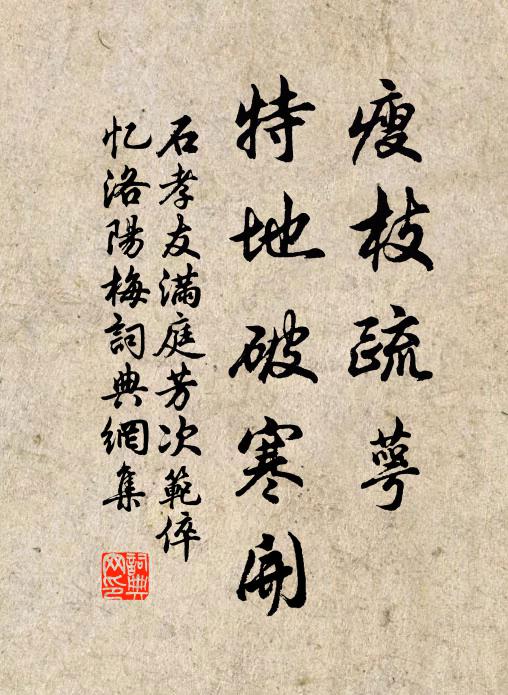 瘦枝疏萼
特地破寒開
石孝友滿庭芳次範倅
忆洛陽梅詞典網集
詞典网印